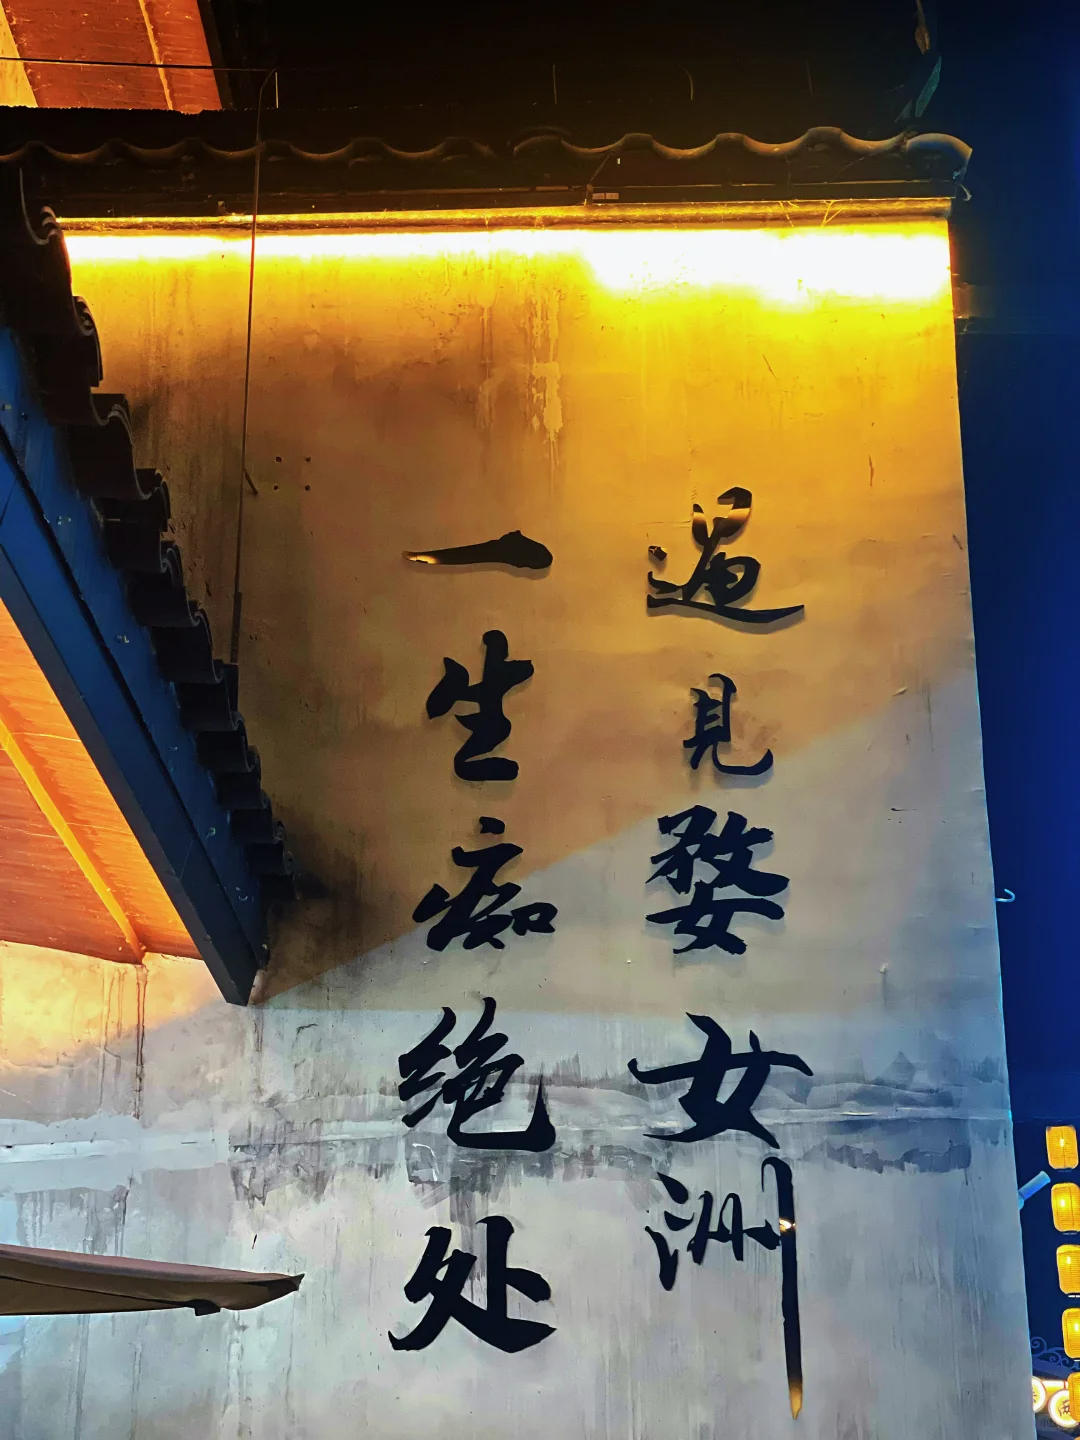 遇見婺女洲
一生痴绝处